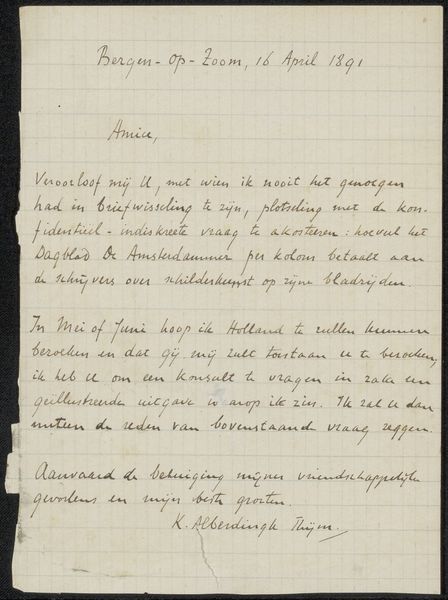 Bergen-op-Zoom, 16 April 1891
Amice,
Veroorloof mij U, met wien ik nooit het genoegen
had in briefwisseling te zijn, plotseling met de kon-
fidentieel-indiskreete vraag te akosteeren: hoeveel het
Dagblad De Amsterdammer per kolom betaalt aan
de schrijvers over schilderkunst op zijne bladzijden.
In Mei of Juni hoop ik Holland te zullen kunnen
bezoeken en dat gij mij zult toestaan u te bezoeken;
ik heb U om een konsult te vragen in zake een
geïllustreerde uitgave waarop ik zin. Ik zal U dan
meteen de reden van bovenstaande vraag zeggen.
Aanvaard de betuiging mijner vriendschappelijke
gevoelens en mijn beste groeten.
K. Alberdingk Thijm.